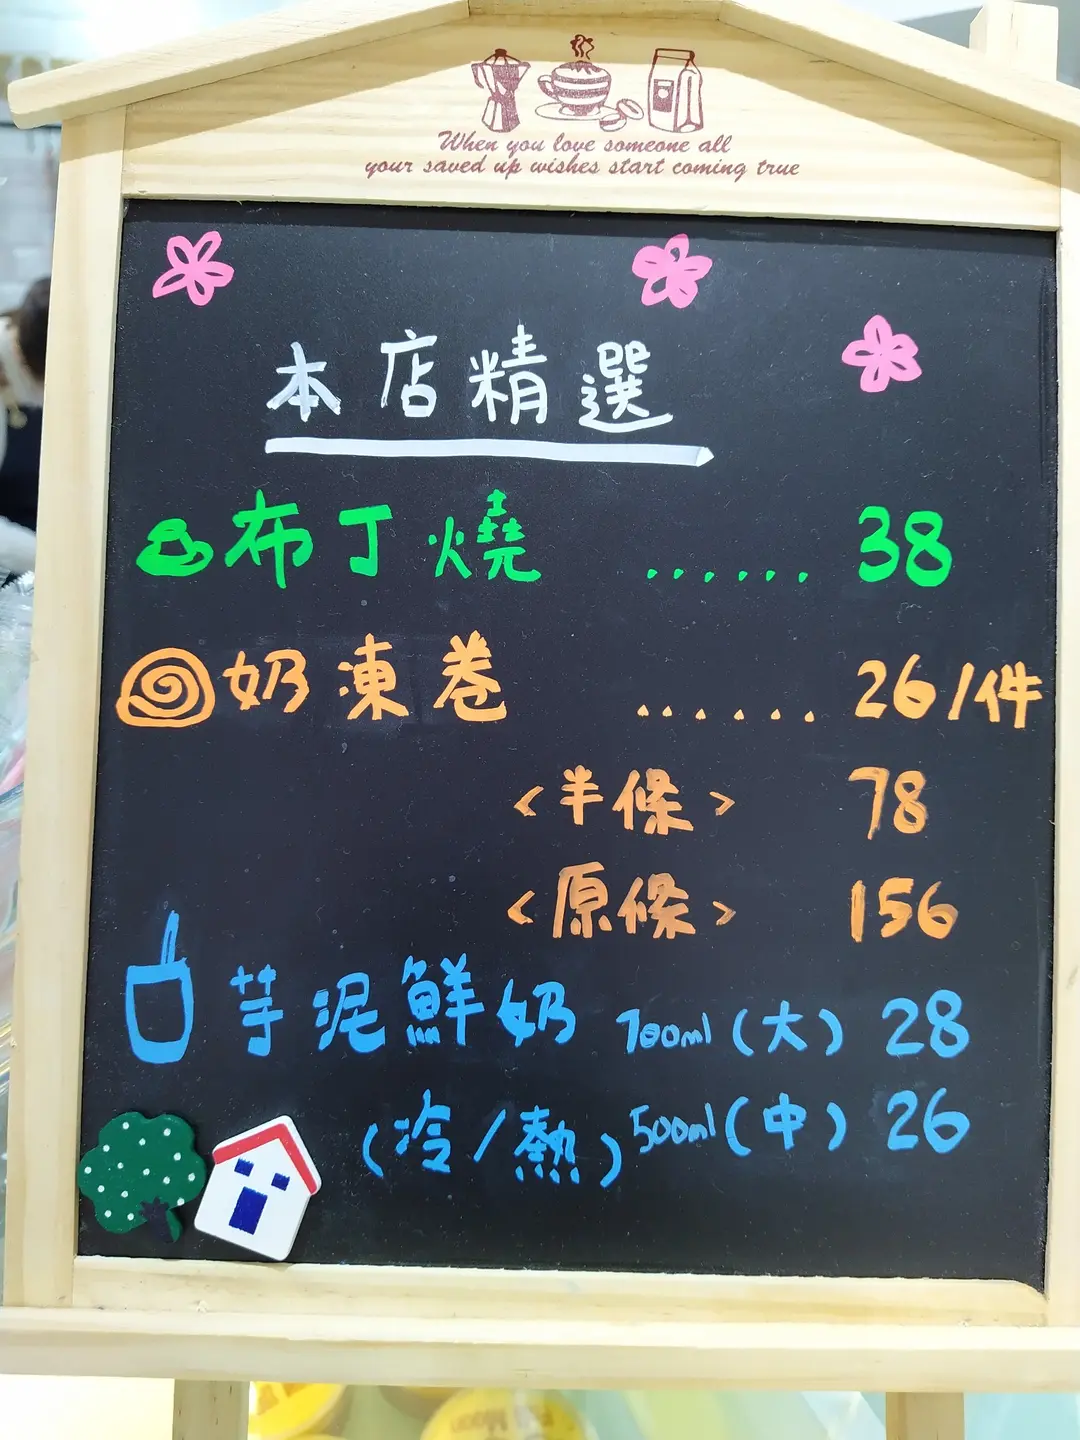 When you love someone all
your saved up wishes start coming true
本店精選
布丁燒 ...... 38
奶凍卷 ...... 26/件
<半條> 78
<原條> 156
芋泥鮮奶 700ml(大) 28
(冷/熱) 500ml(中) 26